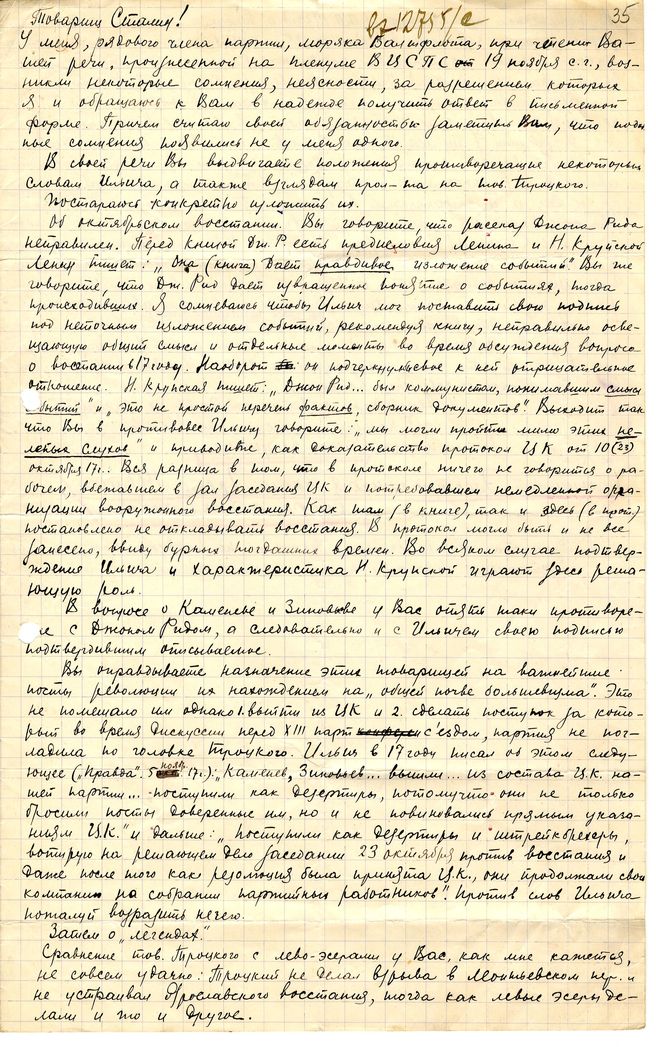 вх 12795/с
35
Товарищ Сталин!
У меня, рядового члена партии, моряка Балтфлота, при чтении Ва-
шей речи, произнесенной на пленуме ВЦСПС 19 ноября с.г., воз-
никли некоторые сомнения, неясности, за разрешением которых
я и обращаюсь к Вам в надежде получить ответ в письменной
форме. Причем считаю своей обязанностью заметить Вам, что подоб
ные сомнения появились не у меня одного.
В своей речи Вы выдвигаете положения противоречащие некоторым
словам Ильича, а также взглядам прол-та на тов. Троцкого.
Постараюсь конкретно изложить их.
Об октябрьском восстании. Вы говорите, что рассказ Джона Рида
неправилен. Перед книгой Дж. Р. есть предисловия Ленина и Н. Крупской
Ленин пишет: „Она (книга) дает правдивое изложение событий“ Вы же
говорите, что Дж. Рид дает извращенное понятие о событиях, тогда
происходивших. Я сомневаюсь чтобы Ильич мог поставить свою подпись
под неточным изложением событий, рекомендуя книгу, неправильно осве-
щающую общий смысл и отдельные моменты во время обсуждения вопроса
о восстании в 17 году. Наоборот он подчеркнул свое к ней отрицательное
отношение. Н. Крупская пишет: „Джон Рид... был коммунистом, понимавшим смысл
событий“ и „это не простой перечень фактов, сборник документов“. Выходит так
что Вы в противовес Ильичу говорите: „мы могли пройти мимо этих не-
лепых слухов“ и приводите, как доказательство протокол ЦК от 10 (23)
октября 17г.. Вся разница в том, что в протоколе ничего не говорится о ра-
бочем, вбежавшем в зал заседания ЦК и потребовавшем немедленной орга-
низации вооруженного восстания. Как там (в книге), так и здесь (в прот.)
постановлено не откладывать восстания. В протокол могло быть и не все
занесено, ввиду бурных тогдашних времен. Во всяком случае подтвер-
ждение Ильича и характеристика Н. Крупской играют здесь реша-
ющую роль.
В вопросе о Каменеве и Зиновьеве у Вас опять таки противоре-
е с Джоном Ридом, а следовательно и с Ильичем своею подписью
подтвердившим описываемое.
Вы оправдываете назначение этих товарищей на важнейшие
посты революции их нахождением на „общей почве большевизма“. Это
не помешало им однако 1. выйти из ЦК и 2. сделать поступок за кото-
рый во время дискуссии перед XIII парт съездом, партия не пог-
ладила по головке Троцкого. Ильич в 17 году писал об этом следу-
ющее („Правда“. 5 нояб. 17г.): „Каменев, Зиновьев... вышли... из состава Ц.К. на-
шей партии... поступили как дезертиры, потому что они не только
бросили посты доверенные им, но и не повиновались прямым указа-
ниям Ц.К.“ и дальше: „поступили как дезертиры и штрейкбрехеры,
вотируя на решающем дело заседании 23 октября против восстания и
даже после того как резолюция была принята Ц.К., они продолжали свою
компанию на собрании партийных работников“. Против слов Ильича
пожалуй возразить нечего.
Затем о „легендах“.
Сравнение тов. Троцкого с лево-эсерами у Вас, как мне кажется,
не совсем удачно: Троцкий не делал взрыва в Леонтьевском пер. и
не устраивал Ярославского восстания, тогда как левые эсеры де-
лали и то и другое.